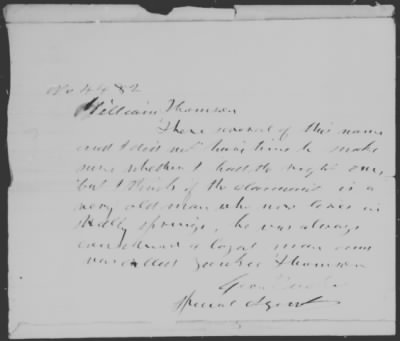 No 4482
William Thomson
There several of this name
and I did not have time to make
sure whether I had the right one,
but I think if the claimant is a
very old man who now lives in
Holly Springs, he was always
considered a loyal man and
was called Yankee Thomson
Special Agent